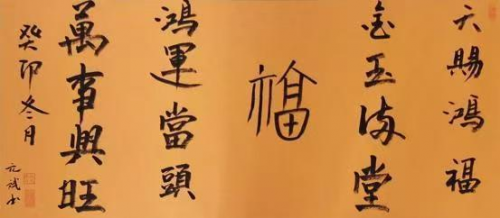 天賜鴻福
金玉满堂
福
鴻運當頭
萬事興旺
癸卯冬月